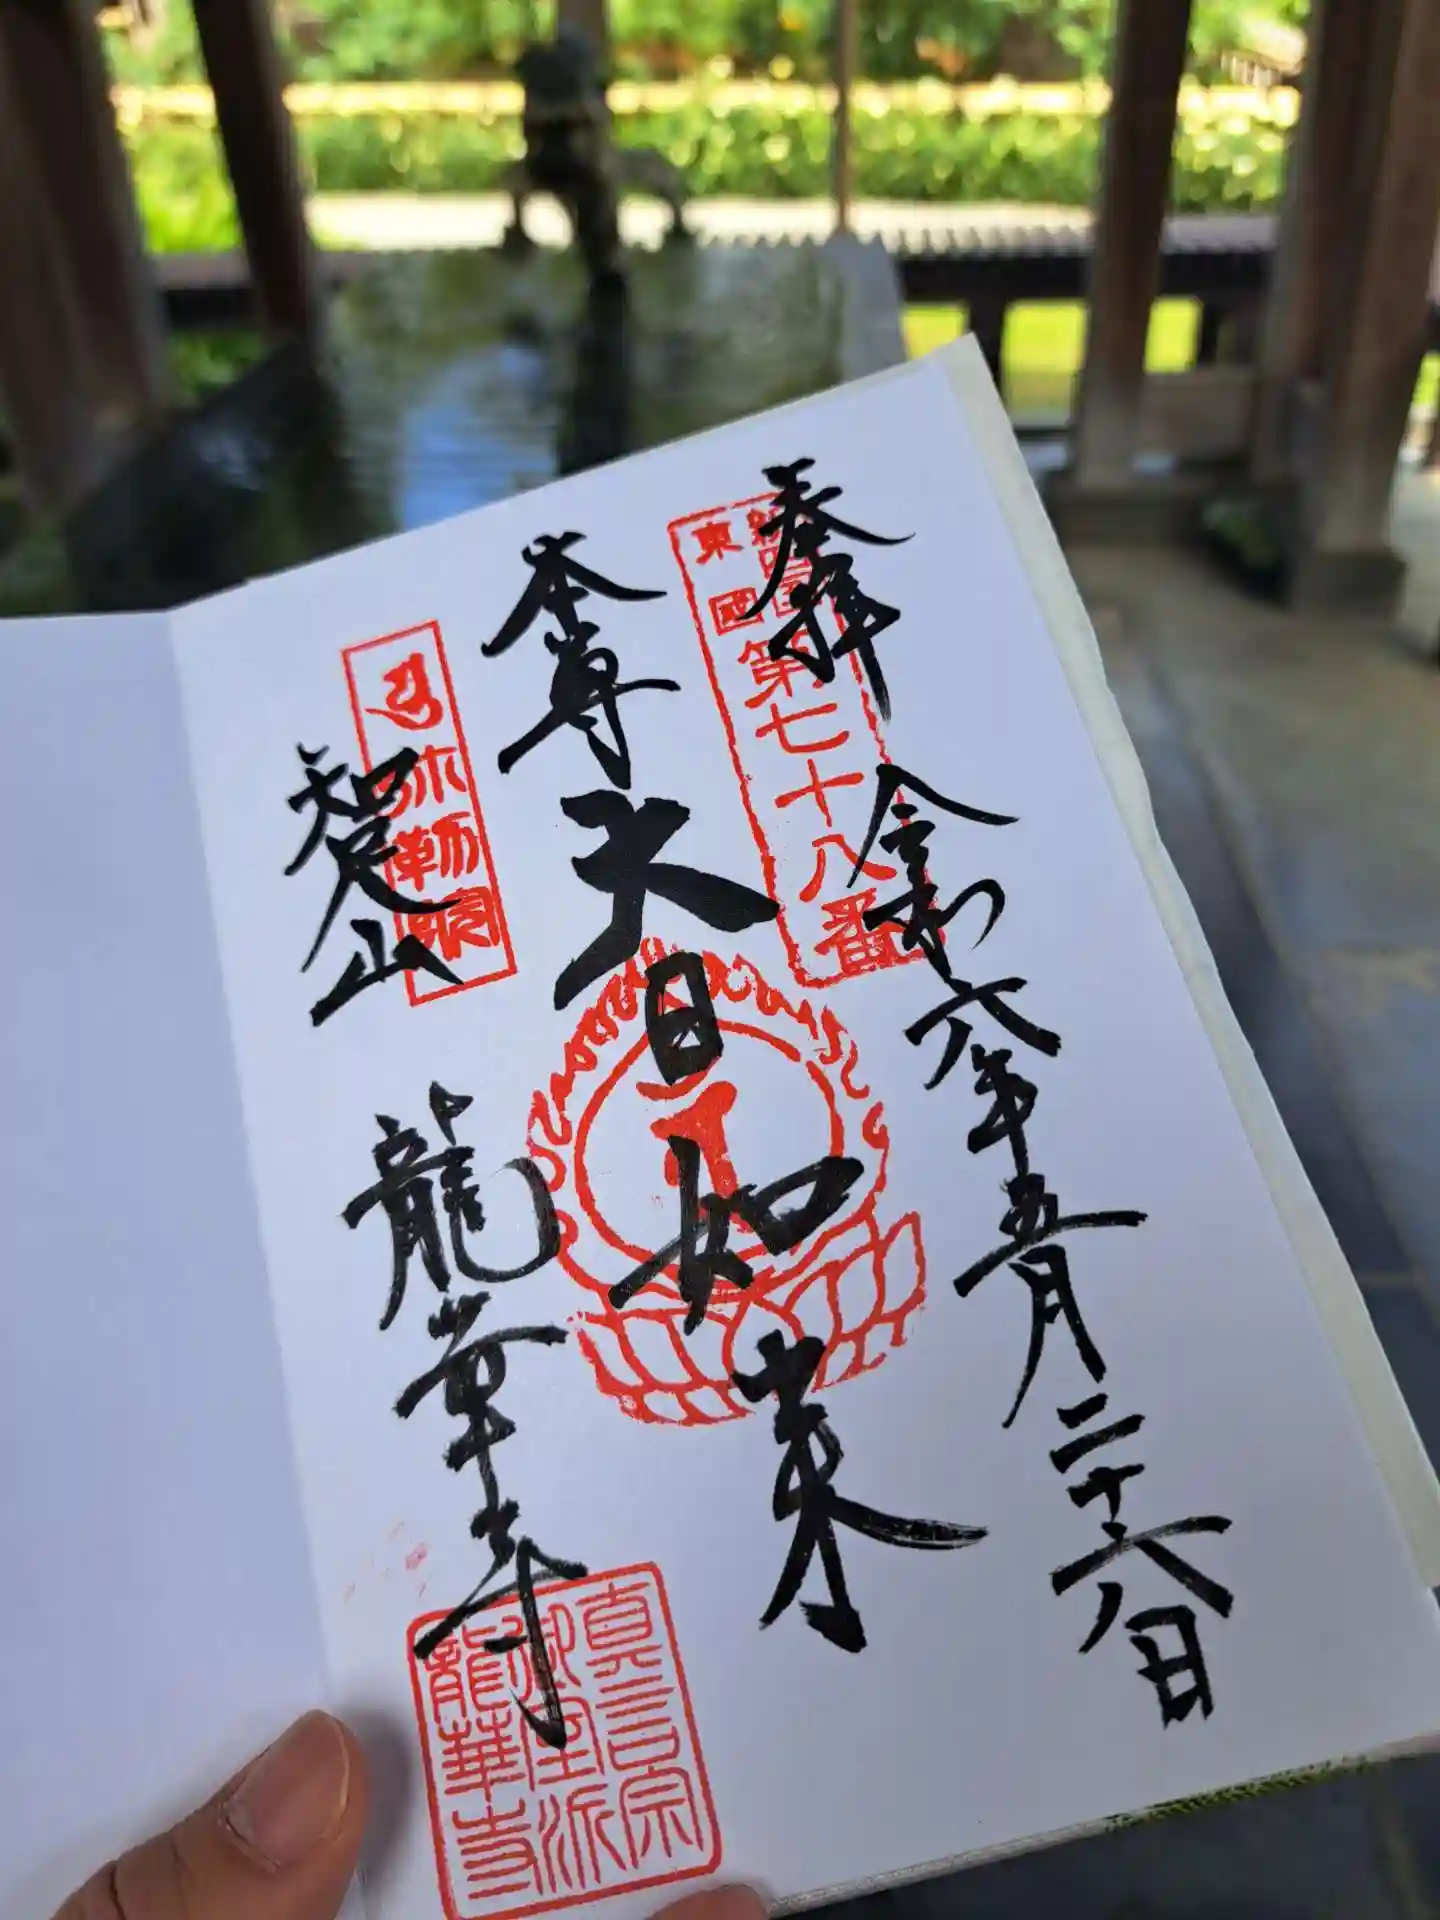 奉拝
令和六年五月二十六日
東國
第七十八番
本尊
大日如来
弥勒院
智足山
龍華寺
真言宗
御室派
龍華寺